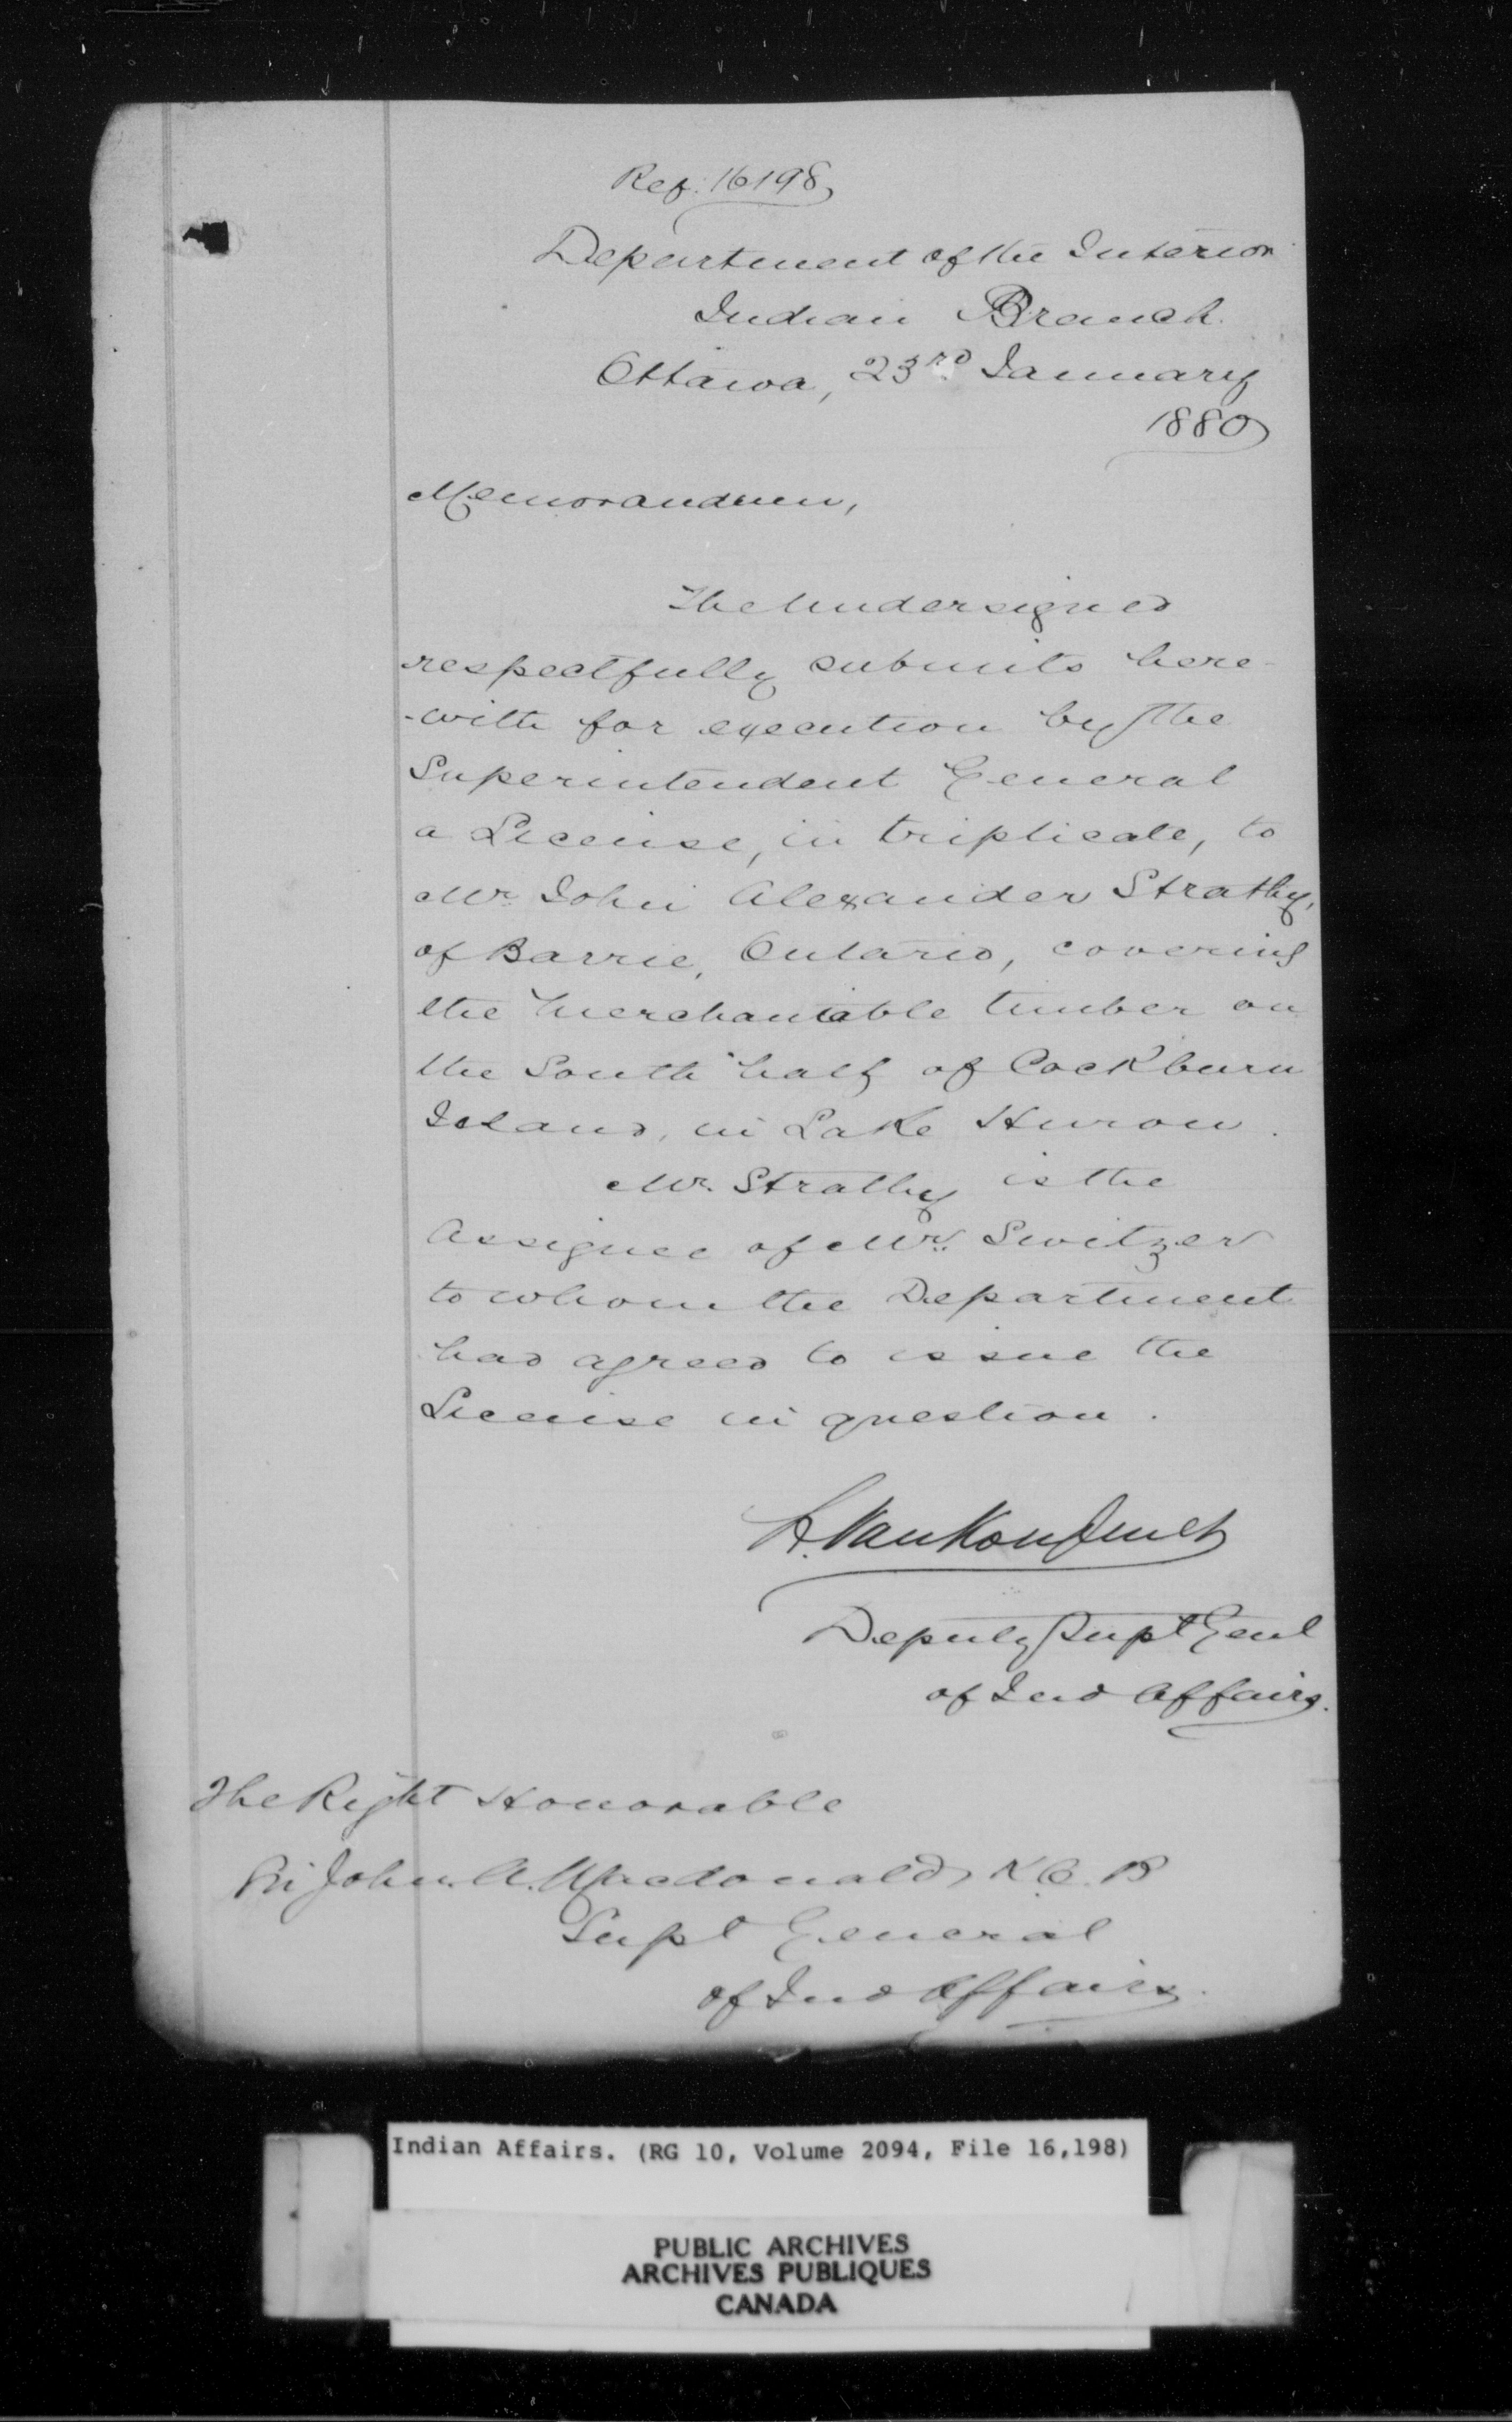 Ref. 16198
Department of the Interior
Indian Branch
Ottawa, 23rd January
1880
Memorandum,
The Undersigned
respectfully submits here-
-with for execution by the
Superintendent General
a License, in triplicate, to
Mr. John Alexander Strathy,
of Barrie, Ontario, covering
the merchantable timber on
the South half of Cockburn
Island, in Lake Huron.
Mr. Strathy is the
Assignee of Mr. Switzer
to whom the Department
had agreed to issue the
License in question.
L. VanKoughnet
Deputy Supt Genl
of Ind Affairs.
The Right Honorable
Sir John A. Macdonald, K.C.B
Supt General
of Ind Affairs.
Indian Affairs. (RG 10, Volume 2094, File 16,198)
PUBLIC ARCHIVES
ARCHIVES PUBLIQUES
CANADA